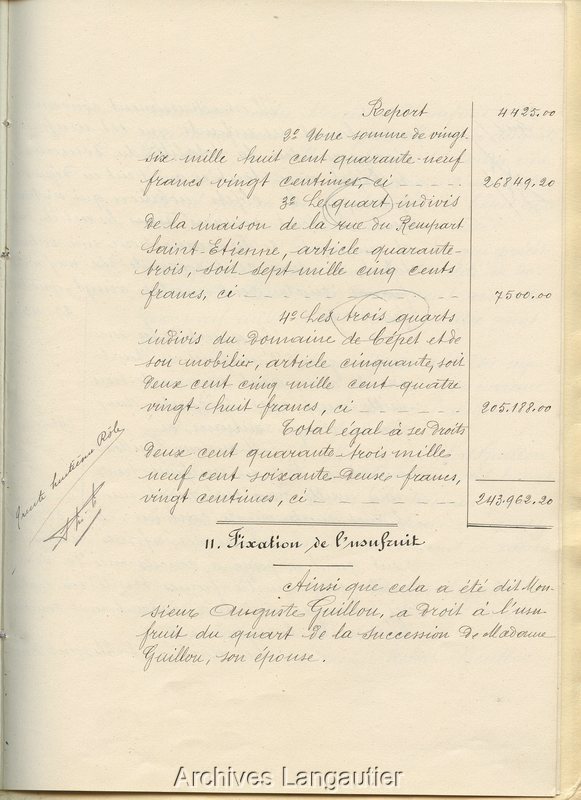 Report 4425.00
2º Une somme de vingt-
six mille huit cent quarante-neuf
francs vingt centimes, ci - - - - 26849.20
3º Le quart indivis
de la maison de la rue du Rempart
Saint-Etienne, article quarante-
trois, soit sept mille cinq cents
francs, ci - - - - 7500.00
4º Les trois quarts
indivis du Domaine de Cépet et de
son mobilier, article cinquante, soit
Deux cent cinq mille cent quatre
vingt huit francs, ci - - - - 205.188.00
Total égal à ses droits
Deux cent quarante trois mille
neuf cent soixante Deux francs,
vingt centimes, ci - - - - 243.962.20
trente huitième Rôle
11. Fixation de l'usufruit
Ainsi que cela a été dit Mon-
sieur Auguste Guillou, a droit à l'usu-
fruit du quart de la succession de Madame
Guillou, son épouse.
Archives Langautier